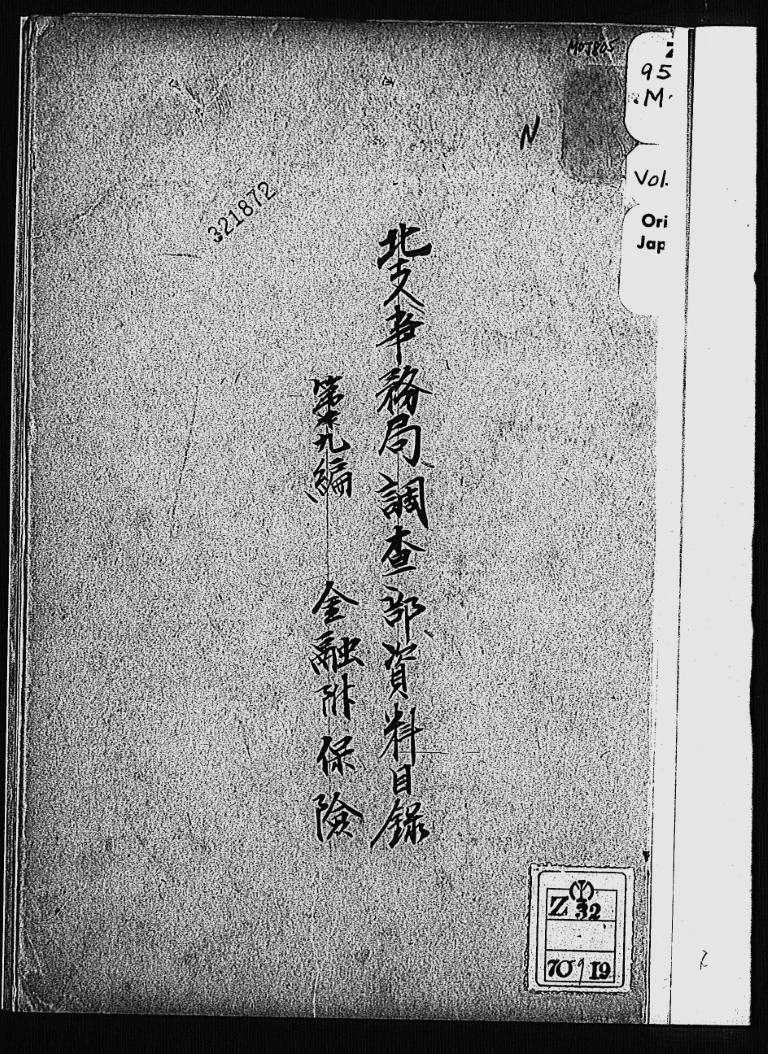 95
M
Vol.
Ori
Jap
N
321872
北支事務局調查部資料目錄
第十九編 金融附保險
Z 32
70 19